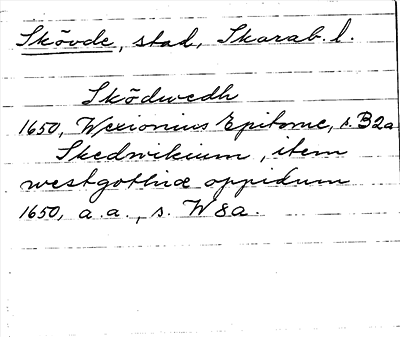 Skövde, stad, Skarab. l.
Sködwedh
1650, Wexionius Epitome, s. B2a
Skedwikium, item
westgothiæ oppidum
1650, a. a., s. W8a.